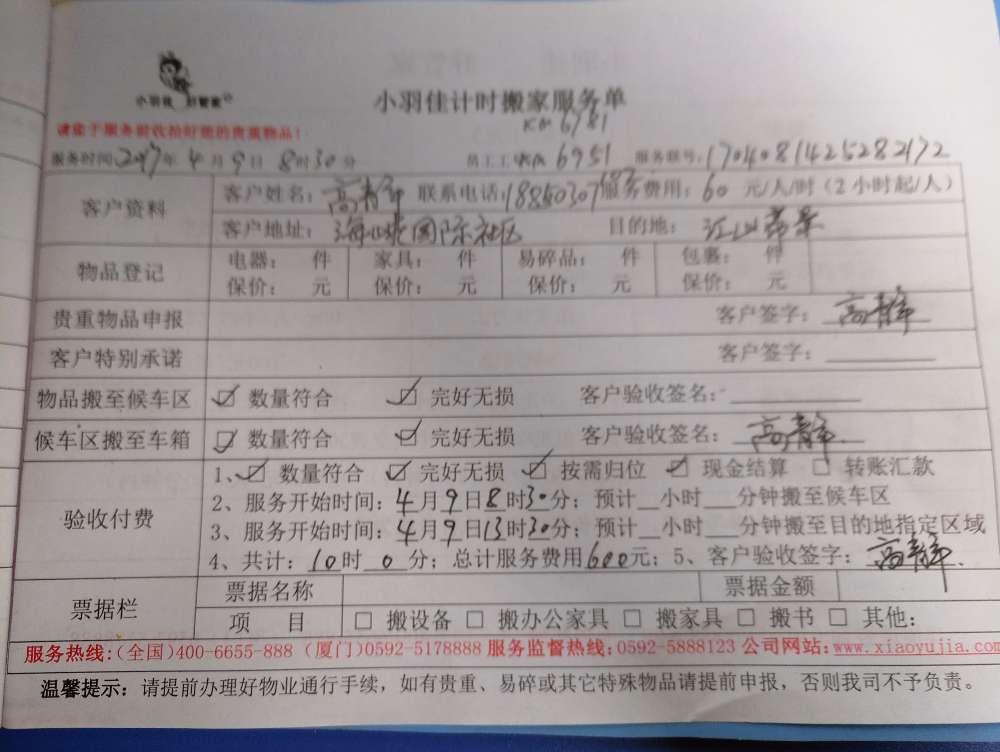 小羽佳 好管家
小羽佳计时搬家服务单
KM 6781
请您于服务前收拾好您的贵重物品!
服务时间:2017年 4 月 9 日 8时30分 员工工号 KM 6951 服务联号:1704081425282172
客户资料 客户姓名:高静 联系电话:18860307 服务费用:60 元/人/时(2小时起/人)
客户地址: 国际社区 目的地:江山
物品登记 电器: 件 家具: 件 易碎品: 件 包裹: 件
保价: 元 保价: 元 保价: 元 保价: 元
贵重物品申报 客户签字:高静
客户特别承诺 客户签字:
物品搬至候车区 ☑ 数量符合 ☑ 完好无损 客户验收签名:
候车区搬至车箱 ☑ 数量符合 ☑ 完好无损 客户验收签名:高静
验收付费 1、☑ 数量符合 ☑ 完好无损 ☑ 按需归位 ☑ 现金结算 □ 转账汇款
2、服务开始时间:4月9日8时30分;预计__小时__分钟搬至候车区
3、服务开始时间:4月9日13时30分;预计__小时__分钟搬至目的地指定区域
4、共计:10时 0 分;总计服务费用600元;5、客户验收签字:高静
票据栏 票据名称 票据金额
项 目 □ 搬设备 □ 搬办公家具 □ 搬家具 □ 搬书 □ 其他:
服务热线:(全国)400-6655-888 (厦门)0592-5178888 服务监督热线:0592-5888123 公司网站:www.xiaoyujia.com
温馨提示:请提前办理好物业通行手续,如有贵重、易碎或其它特殊物品请提前申报,否则我司不予负责。